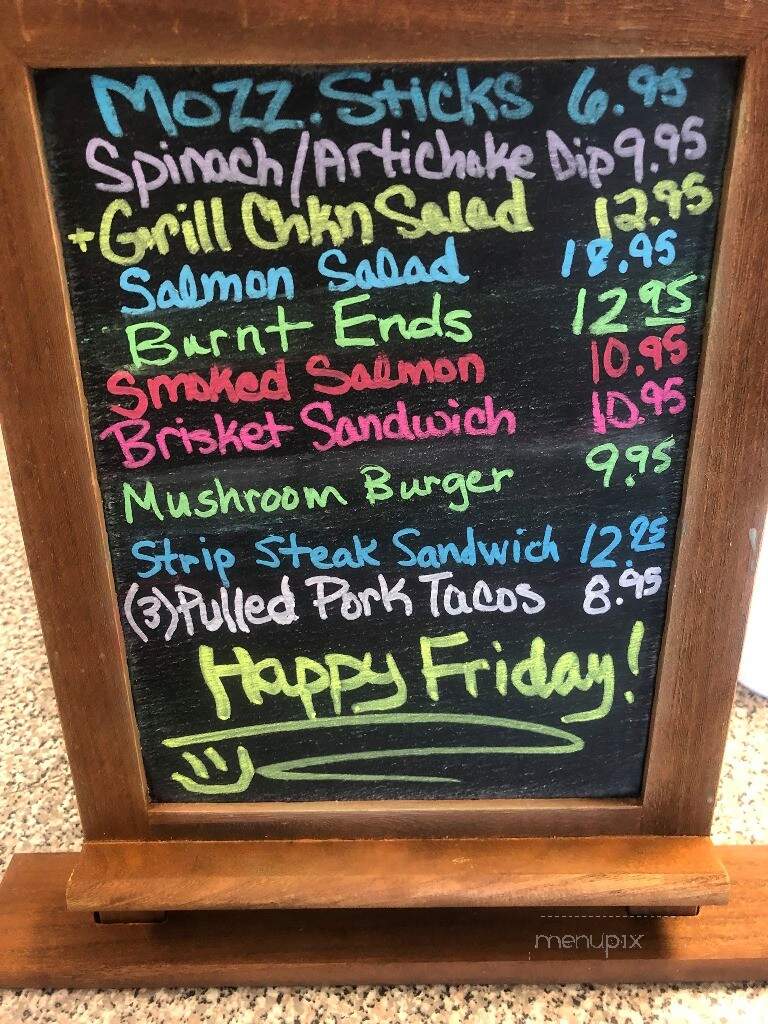 Mozz. Sticks 6.95
Spinach/Artichoke Dip 9.95
+Grill Chkn Salad 12.95
Salmon Salad 18.95
Burnt Ends 12 95
Smoked Salmon 10.95
Brisket Sandwich 10.95
Mushroom Burger 9.95
Strip Steak Sandwich 12.95
(3) Pulled Pork Tacos 8.95
Happy Friday!
menupix